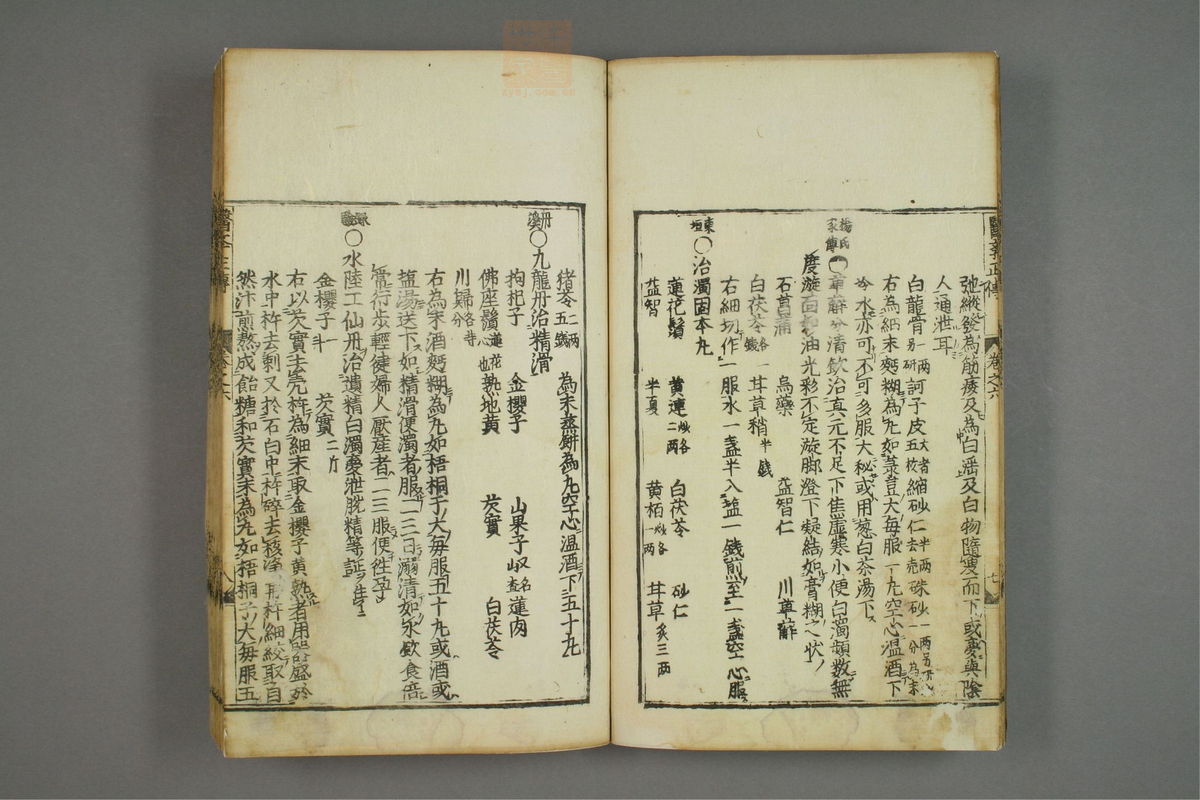 弛縱發為筋痿及為白淫及白物隨溲而下或夢與陰
人通泄耳
白龍骨一兩另研 訶子皮大者五枚 縮砂仁半兩去売 硃砂一兩另研一分為末
右為細末麪糊為丸如菉豆大每服一丸空心温酒下
冷水亦可不可多服大秘或用葱白茶湯下
楊氏家傳 萆薢分清飲治真元不足下焦虛寒小便白濁頻數無
度漩面如油光彩不定漩脚澄下凝結如膏糊之状
石菖蒲 烏藥 益智仁 川萆薢
白茯苓各一錢 耳草稍半錢
右細切作一服水一盞半入盐一錢煎至一盞空心服
東垣 ○治濁固本丸
蓮花鬚 黄連炒各二兩 白茯苓 砂仁
益智 半夏 黄栢炒各一兩 耳草炙三兩
猪苓二兩五錢 為末蒸餅為丸空心温酒下五十丸
丹溪 ○九龍丹治精滑
拘杞子 金櫻子 山果子山查名 蓮肉
佛座鬚蓮花心也 熟地黄 芡實 白茯苓
川歸各等分
右為末酒麪糊為丸如梧桐子大每服五十丸或酒或
盐湯送下如精滑便濁者服二三日溺清如水飲食倍
常行歩輕徤婦人厭産者二三服便徃孕
○水陸工仙丹治遺精白濁夢泄脱精等証
金櫻子一斗 芡實二斤
右以芡實去壳杵為細末取金櫻子黄熟者用器盛於
水中杵去刺又於石臼中杵碎去核淨再杵細絞取自
然汁煎熬成飴糖和芡實末為丸如梧桐子大每服五